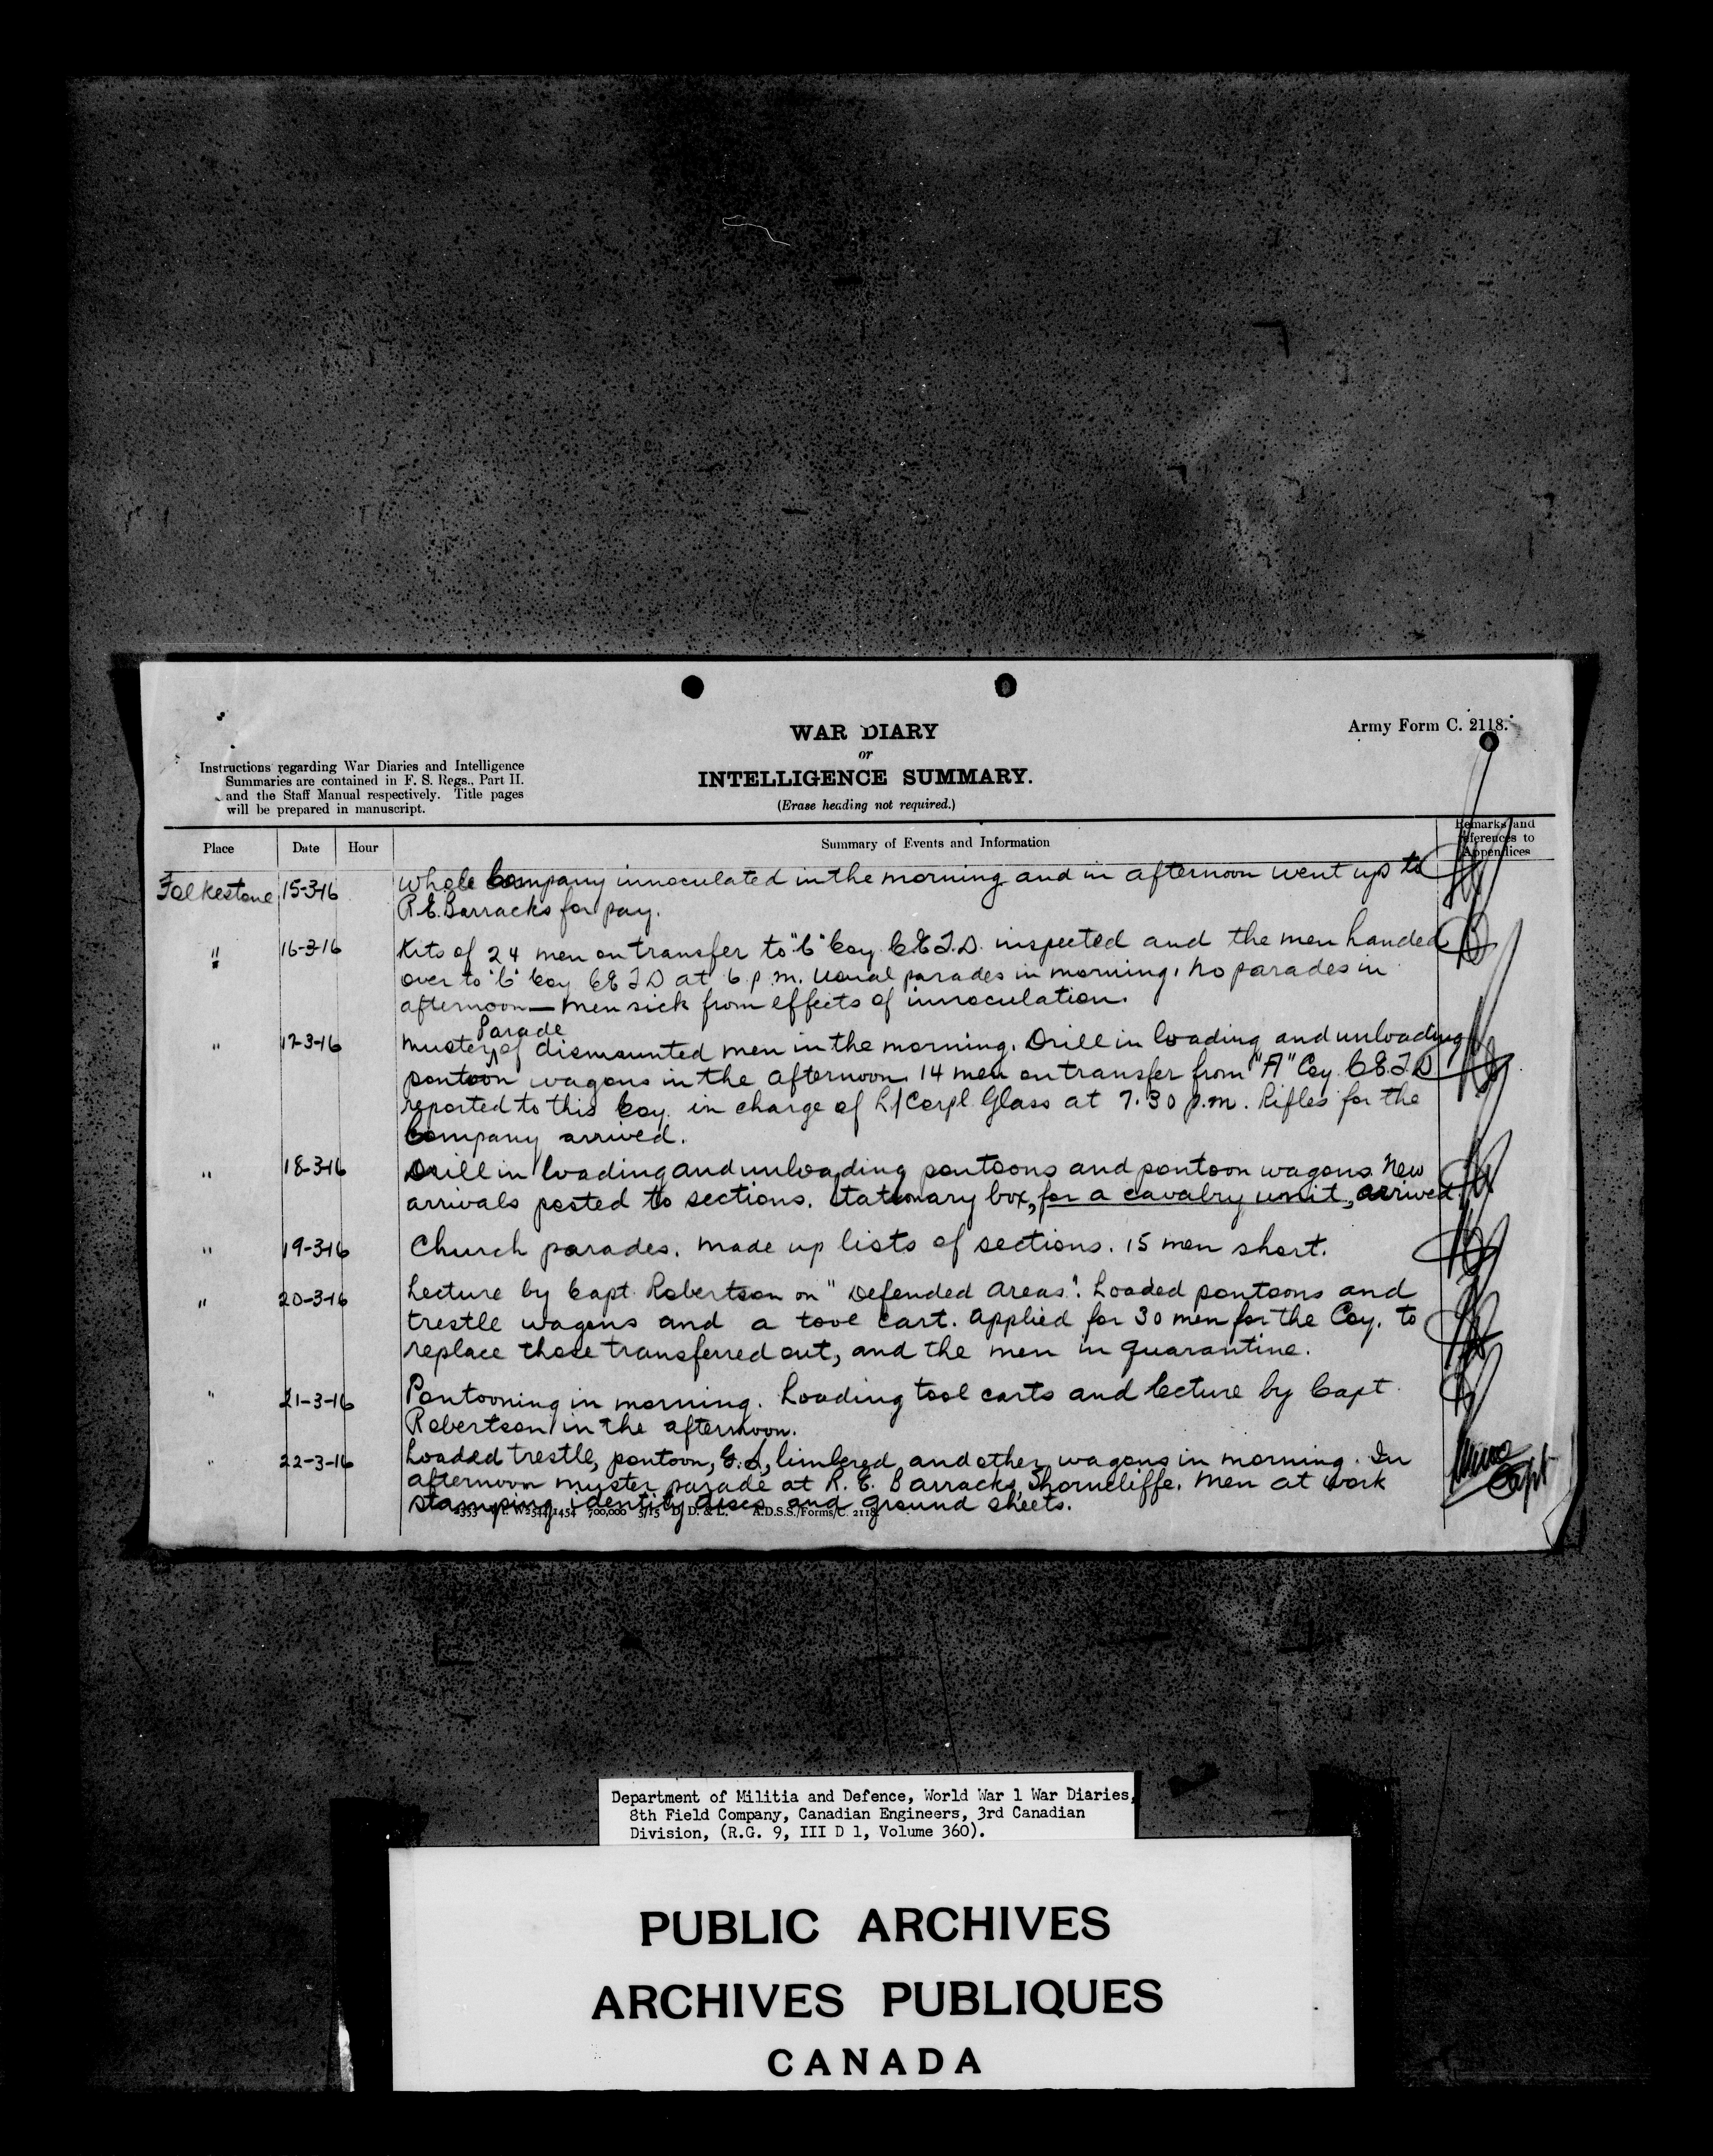 WAR DIARY
or
INTELLIGENCE SUMMARY.
(Erase heading not required.)
Army Form C. 2118.
Instructions regarding War Diaries and Intelligence
Summaries are contained in F. S. Regs., Part II.
and the Staff Manual respectively. Title pages
will be prepared in manuscript.
Place Date Hour Summary of Events and Information Remarks and
references to
Appendices
Folkestone 15-3-16 Whole Company innoculated in the morning and in afternoon went up to
R.E. Barracks for pay.
" 16-3-16 Kits of 24 men on transfer to "C" Coy C.E.T.D. inspected and the men handed
over to "C" Coy C E T D at 6 p.m. Usual parades in morning. No parades in
afternoon — men sick from effects of innoculation.
Parade
" 17-3-16 Muster of dismounted men in the morning. Drill in loading and unloading
pontoon wagons in the afternoon. 14 men on transfer from "A" Coy. C.E.T.D.
reported to this Coy. in charge of L/Corpl. Glass at 7.30 p.m. Rifles for the
Company arrived.
" 18-3-16 Drill in loading and unloading pontoons and pontoon wagons. New
arrivals posted to sections. Stationary box, for a cavalry unit, arrived.
" 19-3-16 Church parades. Made up lists of sections. 15 men short.
" 20-3-16 Lecture by Capt. Robertson on "Defended Areas". Loaded pontoons and
trestle wagons and a tool cart. Applied for 30 men for the Coy. to
replace those transferred out, and the men in quarantine.
" 21-3-16 Pontooning in morning. Loading tool carts and lecture by Capt.
Robertson in the afternoon.
" 22-3-16 Loaded trestle, pontoon, G.S., limbered, and other wagons in morning. In
afternoon muster parade at R. E. Barracks, Shorncliffe. Men at work
stamping identity discs and ground sheets.
Capt
2353 Wt. W2544/1454 700,000 5/15 D. D. & L. A.D.S.S./Forms/C. 2118.
Department of Militia and Defence, World War 1 War Diaries,
8th Field Company, Canadian Engineers, 3rd Canadian
Division, (R.G. 9, III D 1, Volume 360).
PUBLIC ARCHIVES
ARCHIVES PUBLIQUES
CANADA